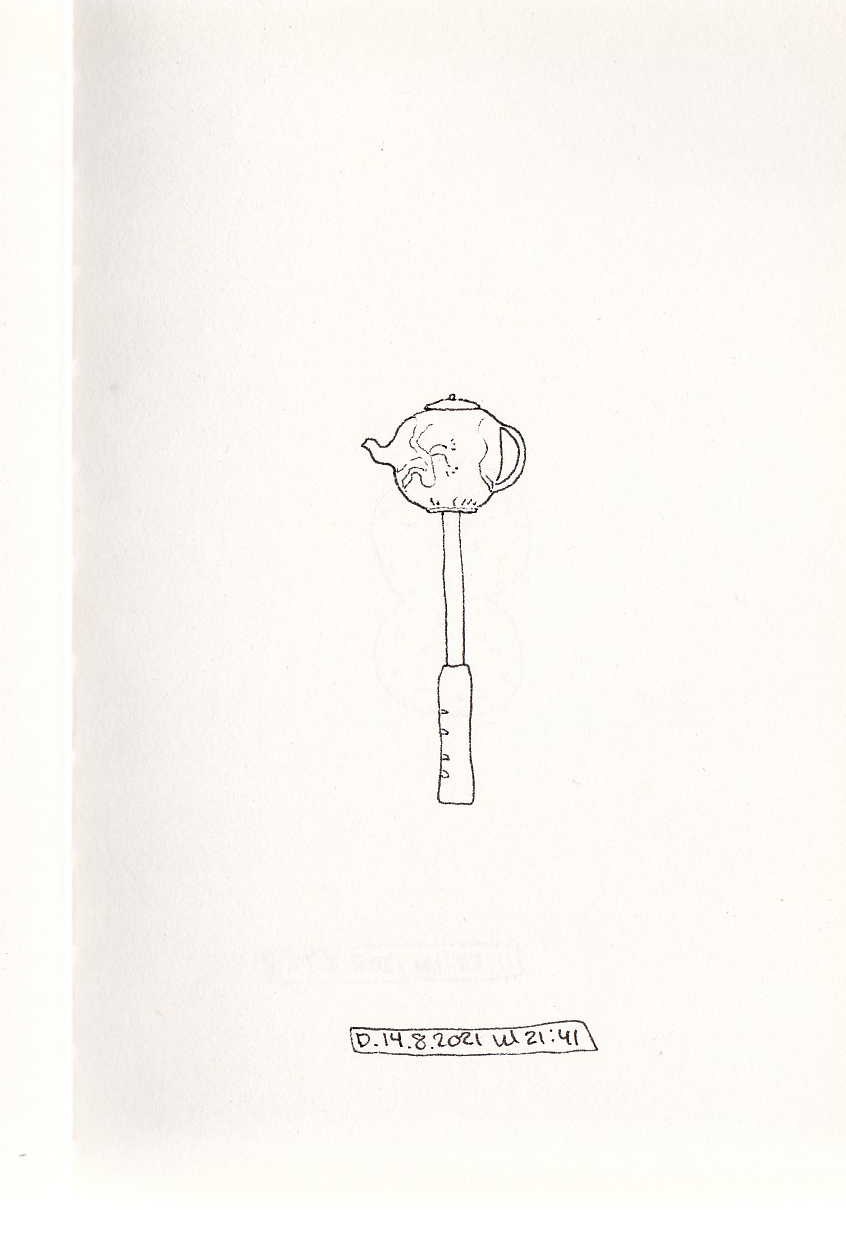 D. 14.8.2021 kl 21:41